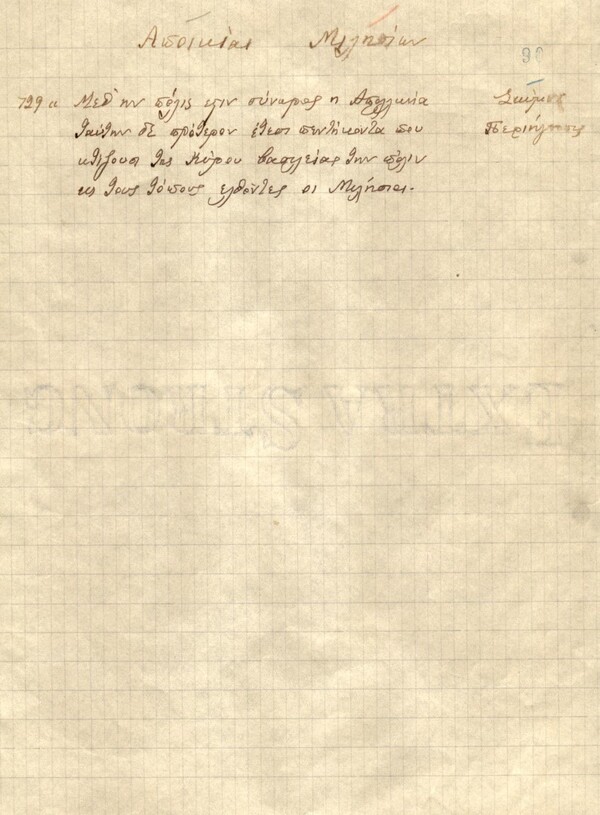 Αποικίαι Μιλησίων
90
729 α Μεθ' ην πόλις εστιν σύνορος η Απολλωνία
ταύτην δε πρότερον έτεσι πεντήκοντα που
κτίζουσι της Κύρου βασιλείας την πόλιν
εις τους τόπους ελθόντες οι Μιλήσιοι.
Σκύμνος
Περιήγησις